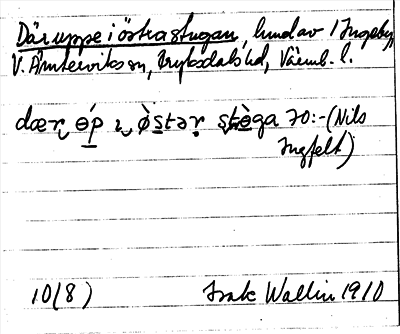 Där uppe i östra stugan, hund av 1 Ingeby,
V. Ämterviks sn, Fryksdals hd, Värml. l.
dær ɵp ı østər stɵga 70:-(Nils
Ingfelt)
10(8) Isak Wallin 1910